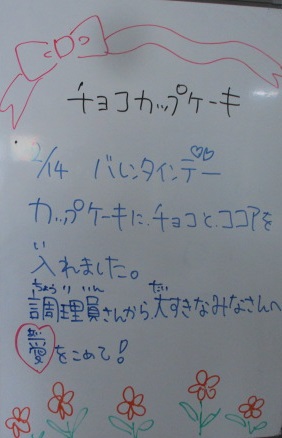 チョコカップケーキ
2/14 バレンタインデー
カップケーキに、チョコと、ココアを
入れました。
調理員さんから、大すきなみなさんへ
愛をこめて!